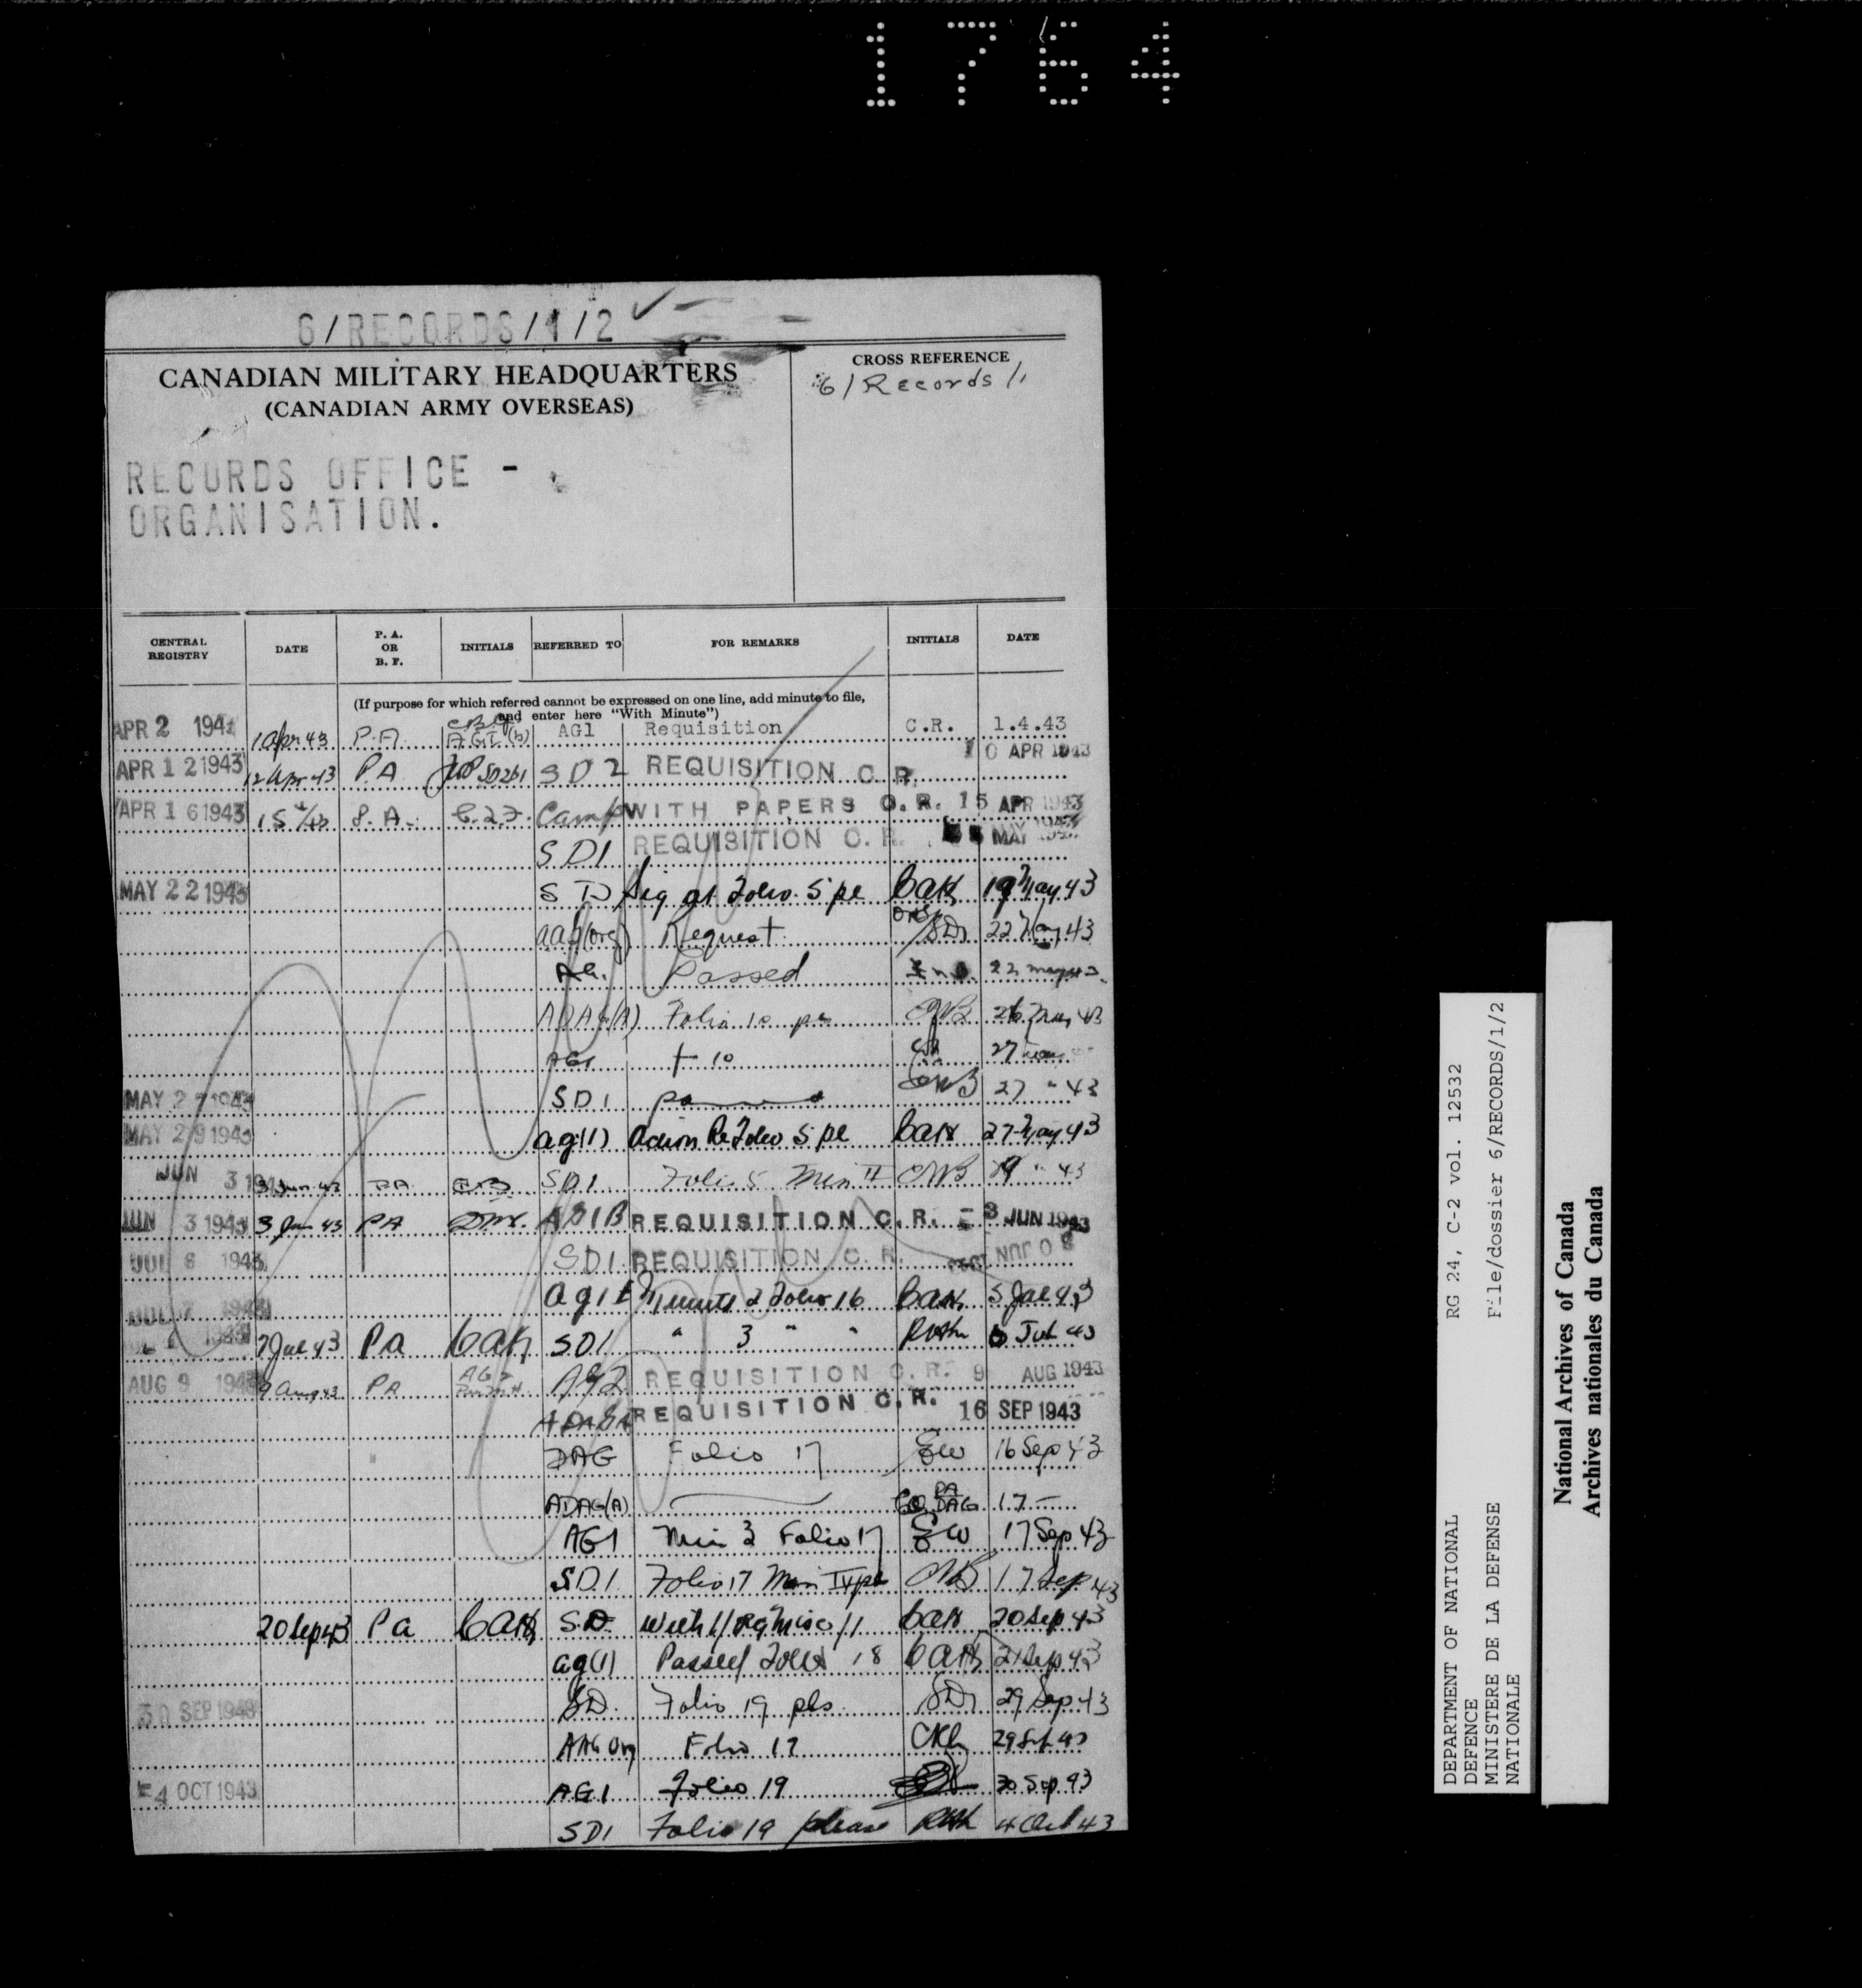 1764
6/RECORDS/1/2
CANADIAN MILITARY HEADQUARTERS
(CANADIAN ARMY OVERSEAS)
CROSS REFERENCE
6/Records/1
RECORDS OFFICE -
ORGANISATION.
CENTRAL REGISTRY DATE P. A. OR B. F. INITIALS REFERRED TO FOR REMARKS INITIALS DATE
(If purpose for which referred cannot be expressed on one line, add minute to file,
and enter here "With Minute")
APR 2 194 1 Apr 43 P.A. AG1(b) AG1 Requisition C.R. 1.4.43
APR 12 1943 12 Apr 43 P.A. SD2b1 SD2 REQUISITION C.R. 10 APR 1943
APR 16 1943 Camp WITH PAPERS C.R. 15 APR 1943
SD1 REQUISITION C.R. MAY 1943
MAY 22 1943 at Folio 5 pl 19 May 43
AAG(Org) Request SD1 22 May 43
AG. Passed 22 May 43
ADAG(A) Folio 10 pls 26 May 43
AG1 10 27 May
MAY 27 1943 SD1 passed 27 " 43
MAY 29 1943 ag(1) Action Re Folio 5 pl 27 May 43
JUN 3 194 3 Jun 43 PA SD1 Folio 5 Min II 29 " 43
JUN 3 1943 3 Jun 43 PA AG1B REQUISITION C.R. -3 JUN 1943
JUL 6 1943 SD1 REQUISITION C.R.
JUL 7 1943 ag1 Minute 2 Folio 16 5 Jul 43
7 Jul 43 Pa SD1 " 3 " " 6 Jul 43
AUG 9 1943 9 Aug 43 PA AG2 AG2 REQUISITION C.R. 9 AUG 1943
ADAGA REQUISITION C.R. 16 SEP 1943
DAG Folio 17 16 Sep 43
ADAG(A) PA DAG 17 -
AG1 Min 3 Folio 17 17 Sep 43
SD1 Folio 17 Min IV pls 17 Sep 43
20 Sep 43 Pa SD 20 Sep 43
ag(1) Passed Folio 18 21 Sep 43
30 SEP 1943 SD. Folio 19 pls. SD1 29 Sep 43
AAG Org Folio 19 29 Sep 43
-4 OCT 1943 AG1 Folio 19 30 Sep 43
SD1 Folio 19 please 4 Oct 43
DEPARTMENT OF NATIONAL RG 24, C-2 vol. 12532
DEFENCE
MINISTERE DE LA DEFENSE File/dossier 6/RECORDS/1/2
NATIONALE
National Archives of Canada
Archives nationales du Canada